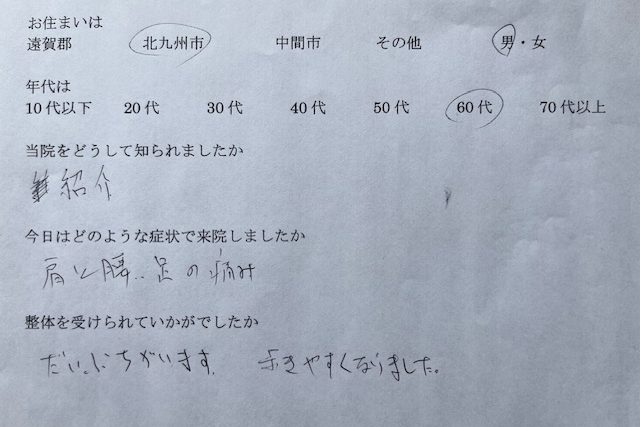 お住まいは
遠賀郡 北九州市 中間市 その他 男・女
年代は
10代以下 20代 30代 40代 50代 60代 70代以上
当院をどうして知られましたか
紹介
今日はどのような症状で来院しましたか
肩と腰、足の痛み
整体を受けられていかがでしたか
だいぶちがいます。 歩きやすくなりました。